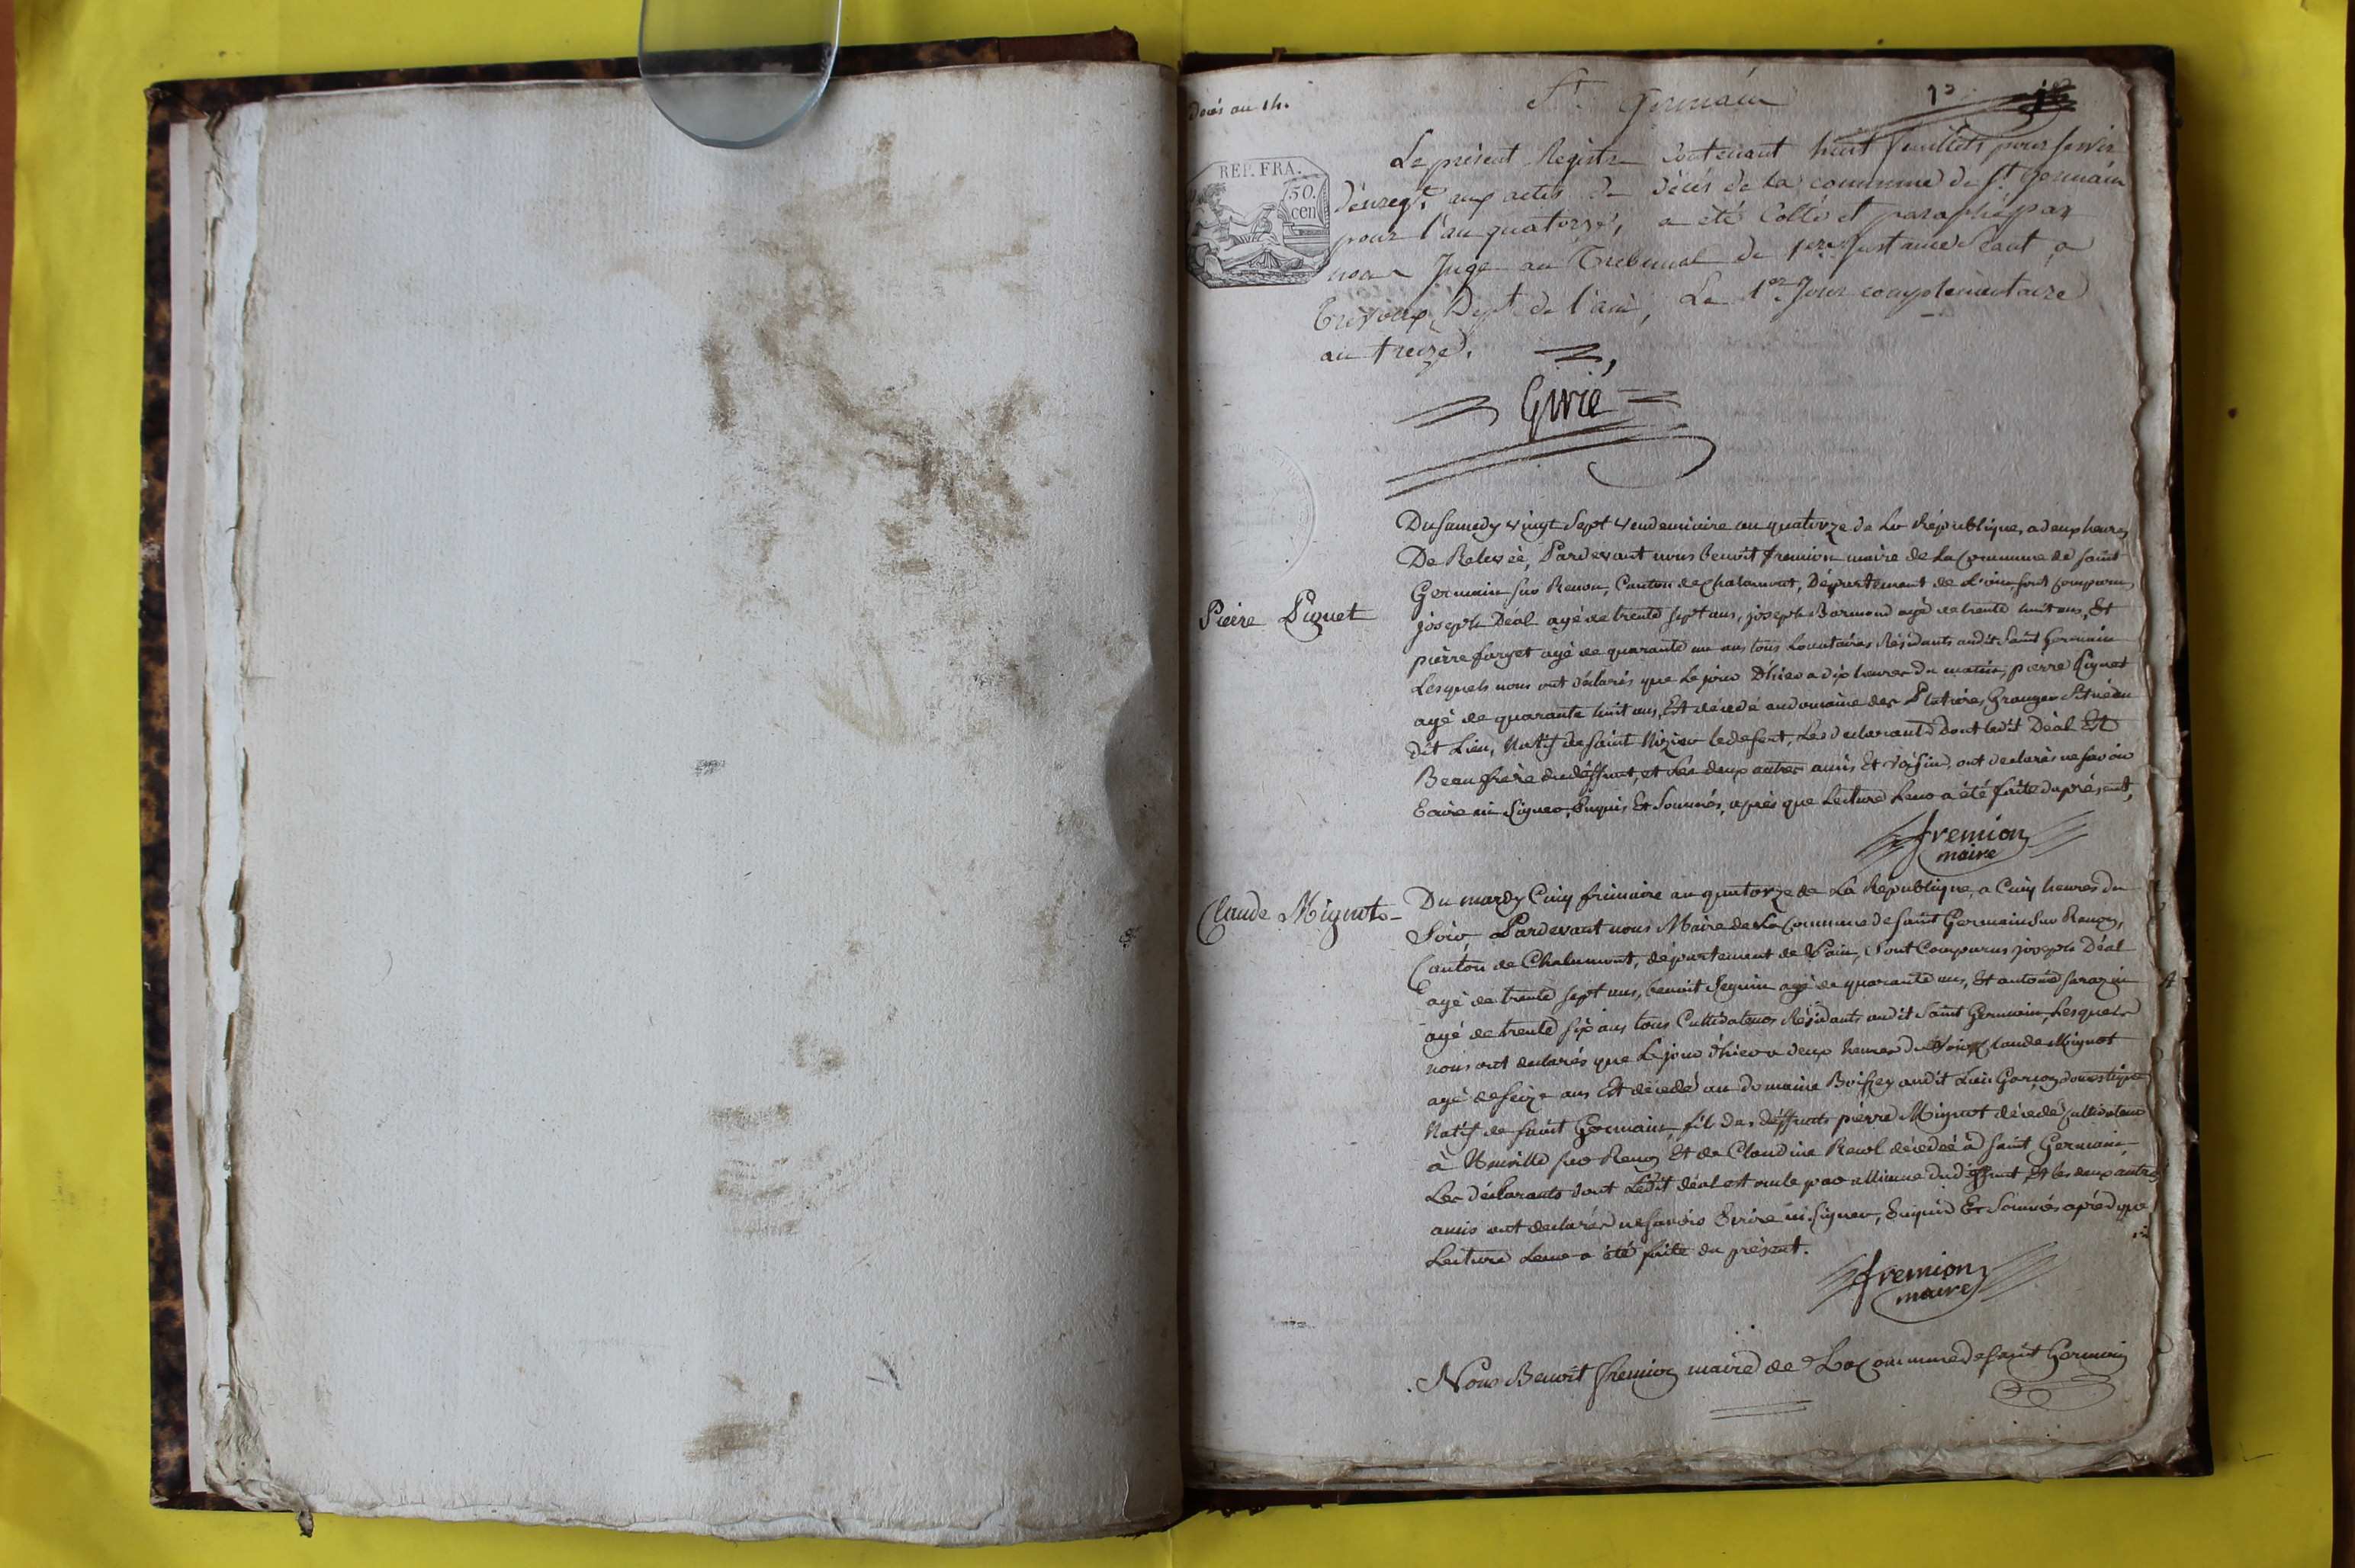 décés an 14.
St. Germain
REP. FRA.
50.
cen
Le présent Registre Contenant huit feuillets pour servir
d'enregt. aux actes de décés de la commune de St. Germain
pour l'an quatorze, a été Cotté et paraphé par
nous Juge au Tribunal de 1ere Instance Séant a
Trevoux Dept. de l'ain, Le 1er Jour complémentaire
an treize.
Givié
Du Samedy vingt Sept vendemiaire an quatorze de La République, a deux heures
De Relevée, Pardevant nous benoit fremion maire de La Commune de Saint
Germain sur Renon, Canton de Chalamont, Département de L'ain, sont Comparus
Pierre Piquet
joseph Déal agé de trente sept ans, joseph Bormond agé de trente huit ans, Et
pierre farget agé de quarante un ans tous Locataires Résidants audit Saint Germain
Lesquels nous ont déclarés que Le jour D'hier a dix heures du matin, pierre Piquet
agé de quarante huit ans, Est décédé au domaine des Platières, Granger Situé au
dit Lieu, Natif de Saint Nizier le desert, Les declarants dont ledit Déal Est
Beau frère du déffunt, et Les deux autres amis Et voisins, ont declarés ne savoir
Ecrire ni Signer, Enquis Et Sommés, après que Lecture Leur a été faite du présent,
fremion
maire
Claude Mignot
Du mardy Cinq frimaire an quatorze de La République, a Cinq heures du
Soir, Pardevant nous Maire de La Commune de Saint Germain Sur Renon,
Canton de Chalamont, département de L'ain, Sont Comparus joseph Déal
agé de trente sept ans, benoit Seguin agé de quarante ans, Et antoine sarazin
agé de trente six ans tous Cultivateurs Résidants audit Saint Germain, Lesquels
nous ont declarés que Le jour d'hier a deux heures du Soir, Claude Mignot
agé de seize ans Est décédé au Domaine Boissey audit Lieu Garçon domestique
Natif de saint Germain, fils des déffunts pierre Mignot décédé Cultivateur
à Neuville sur Renon Et de Claudine Revol décédée à saint Germain,
Les déclarants dont Ledit déal est oncle par alliance du déffunt, Et les deux autres
amis ont declarés ne savoir Ecrire ni Signer, Enquis Et Sommés après que
Lecture Leur a été faite du présent.
fremion
maire
Nous Benoit fremion maire de La Commune de saint Germain